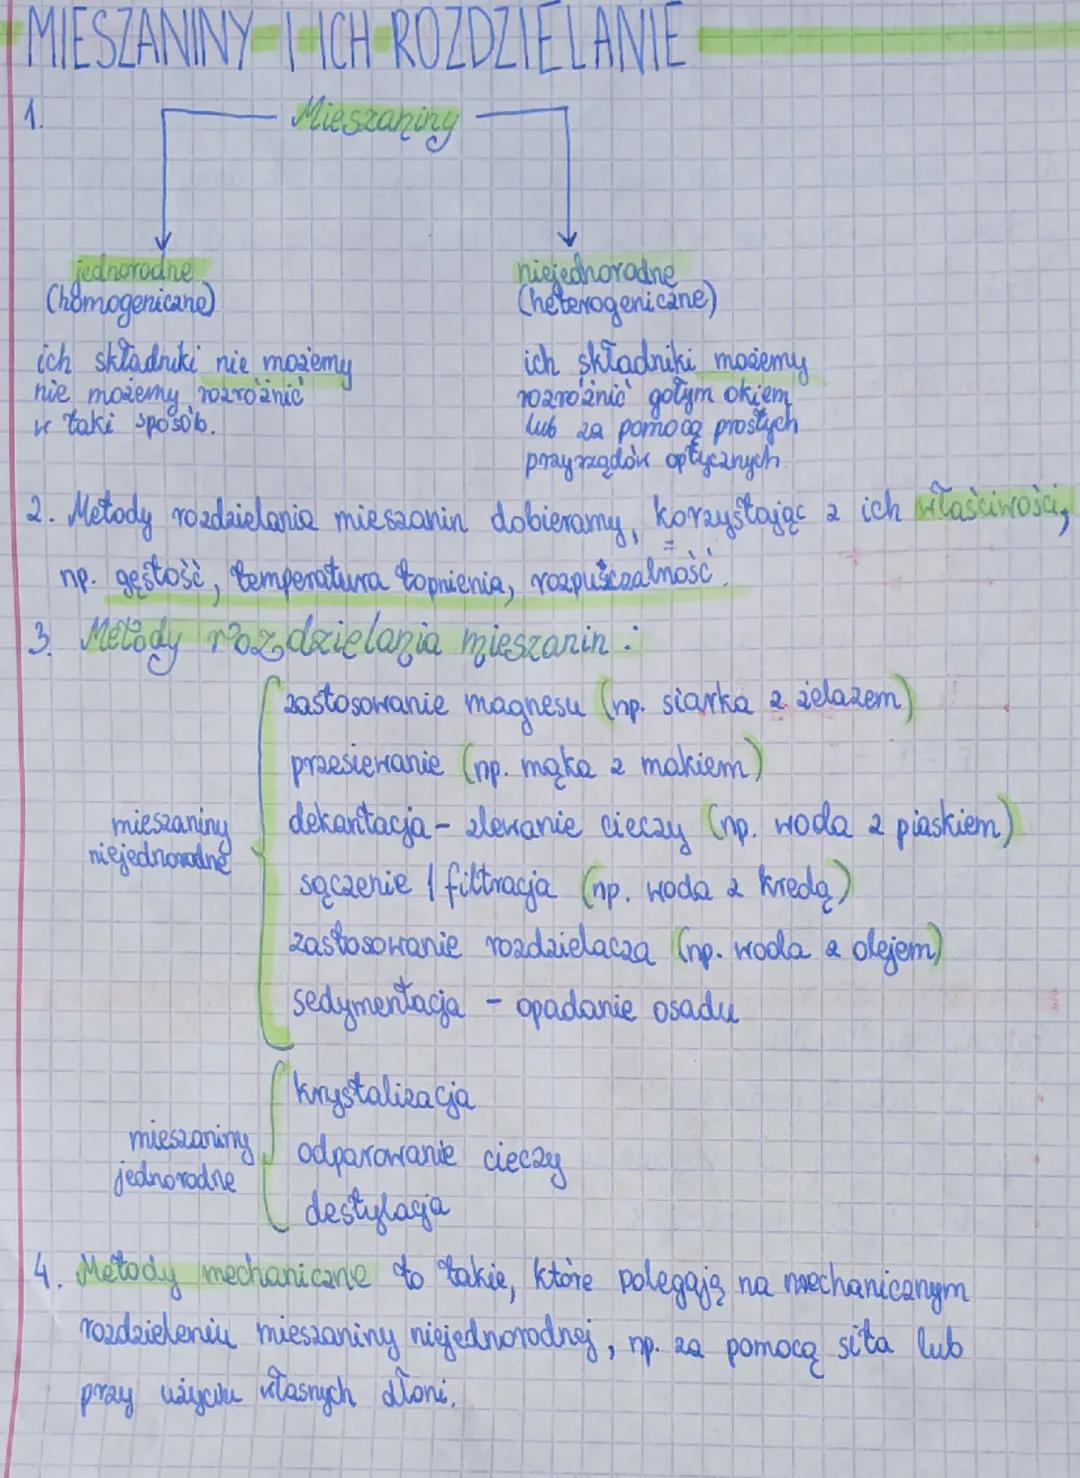 MIESZANINY I ICH ROZDZIELANIE
1. Mieszaniny
jednorodne
(homogeniczne)
ich składniki nie możemy
nie możemy rozróżnić
w taki sposób.
niejednorodne
(heterogeniczne)
ich składniki możemy
rozróżnić gołym okiem
lub za pomocą prostych
przyrządów optycznych.
2. Metody rozdzielania mieszanin dobieramy, korzystając z ich właściwości,
np. gęstość, temperatura topnienia, rozpuszczalność.
3. Metody rozdzielania mieszanin:
mieszaniny
niejednorodne
zastosowanie magnesu (np. siarka z żelazem)
przesiewanie (np. mąka z makiem)
dekantacja - zlewanie cieczy (np. woda z piaskiem)
sączenie / filtracja (np. woda z kredą)
zastosowanie rozdzielacza (np. woda z olejem)
sedymentacja - opadanie osadu
mieszaniny
jednorodne
krystalizacja
odparowanie cieczy
destylacja
4. Metody mechaniczne to takie, które polegają na mechanicznym
rozdzieleniu mieszaniny niejednorodnej, np. za pomocą sita lub
przy użyciu własnych dłoni.